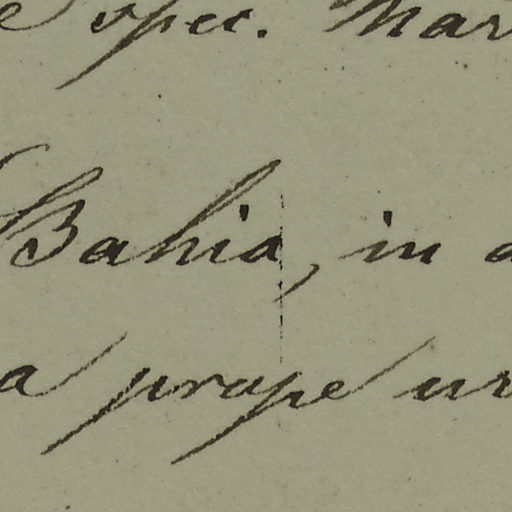 e spec. Mar
Bahia, in a
a prope ur